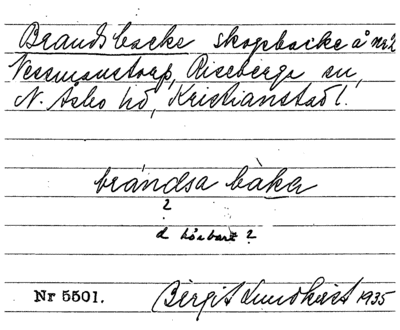 Brandsbacke skogsbacke å nr 2
Vessmanstorp, Riseberga sn,
N. Åsbo hd, Kristianstad l.
brándsa bàka
?
d hörbart ?
Nr 5501. Birgit Lundkvist 1935